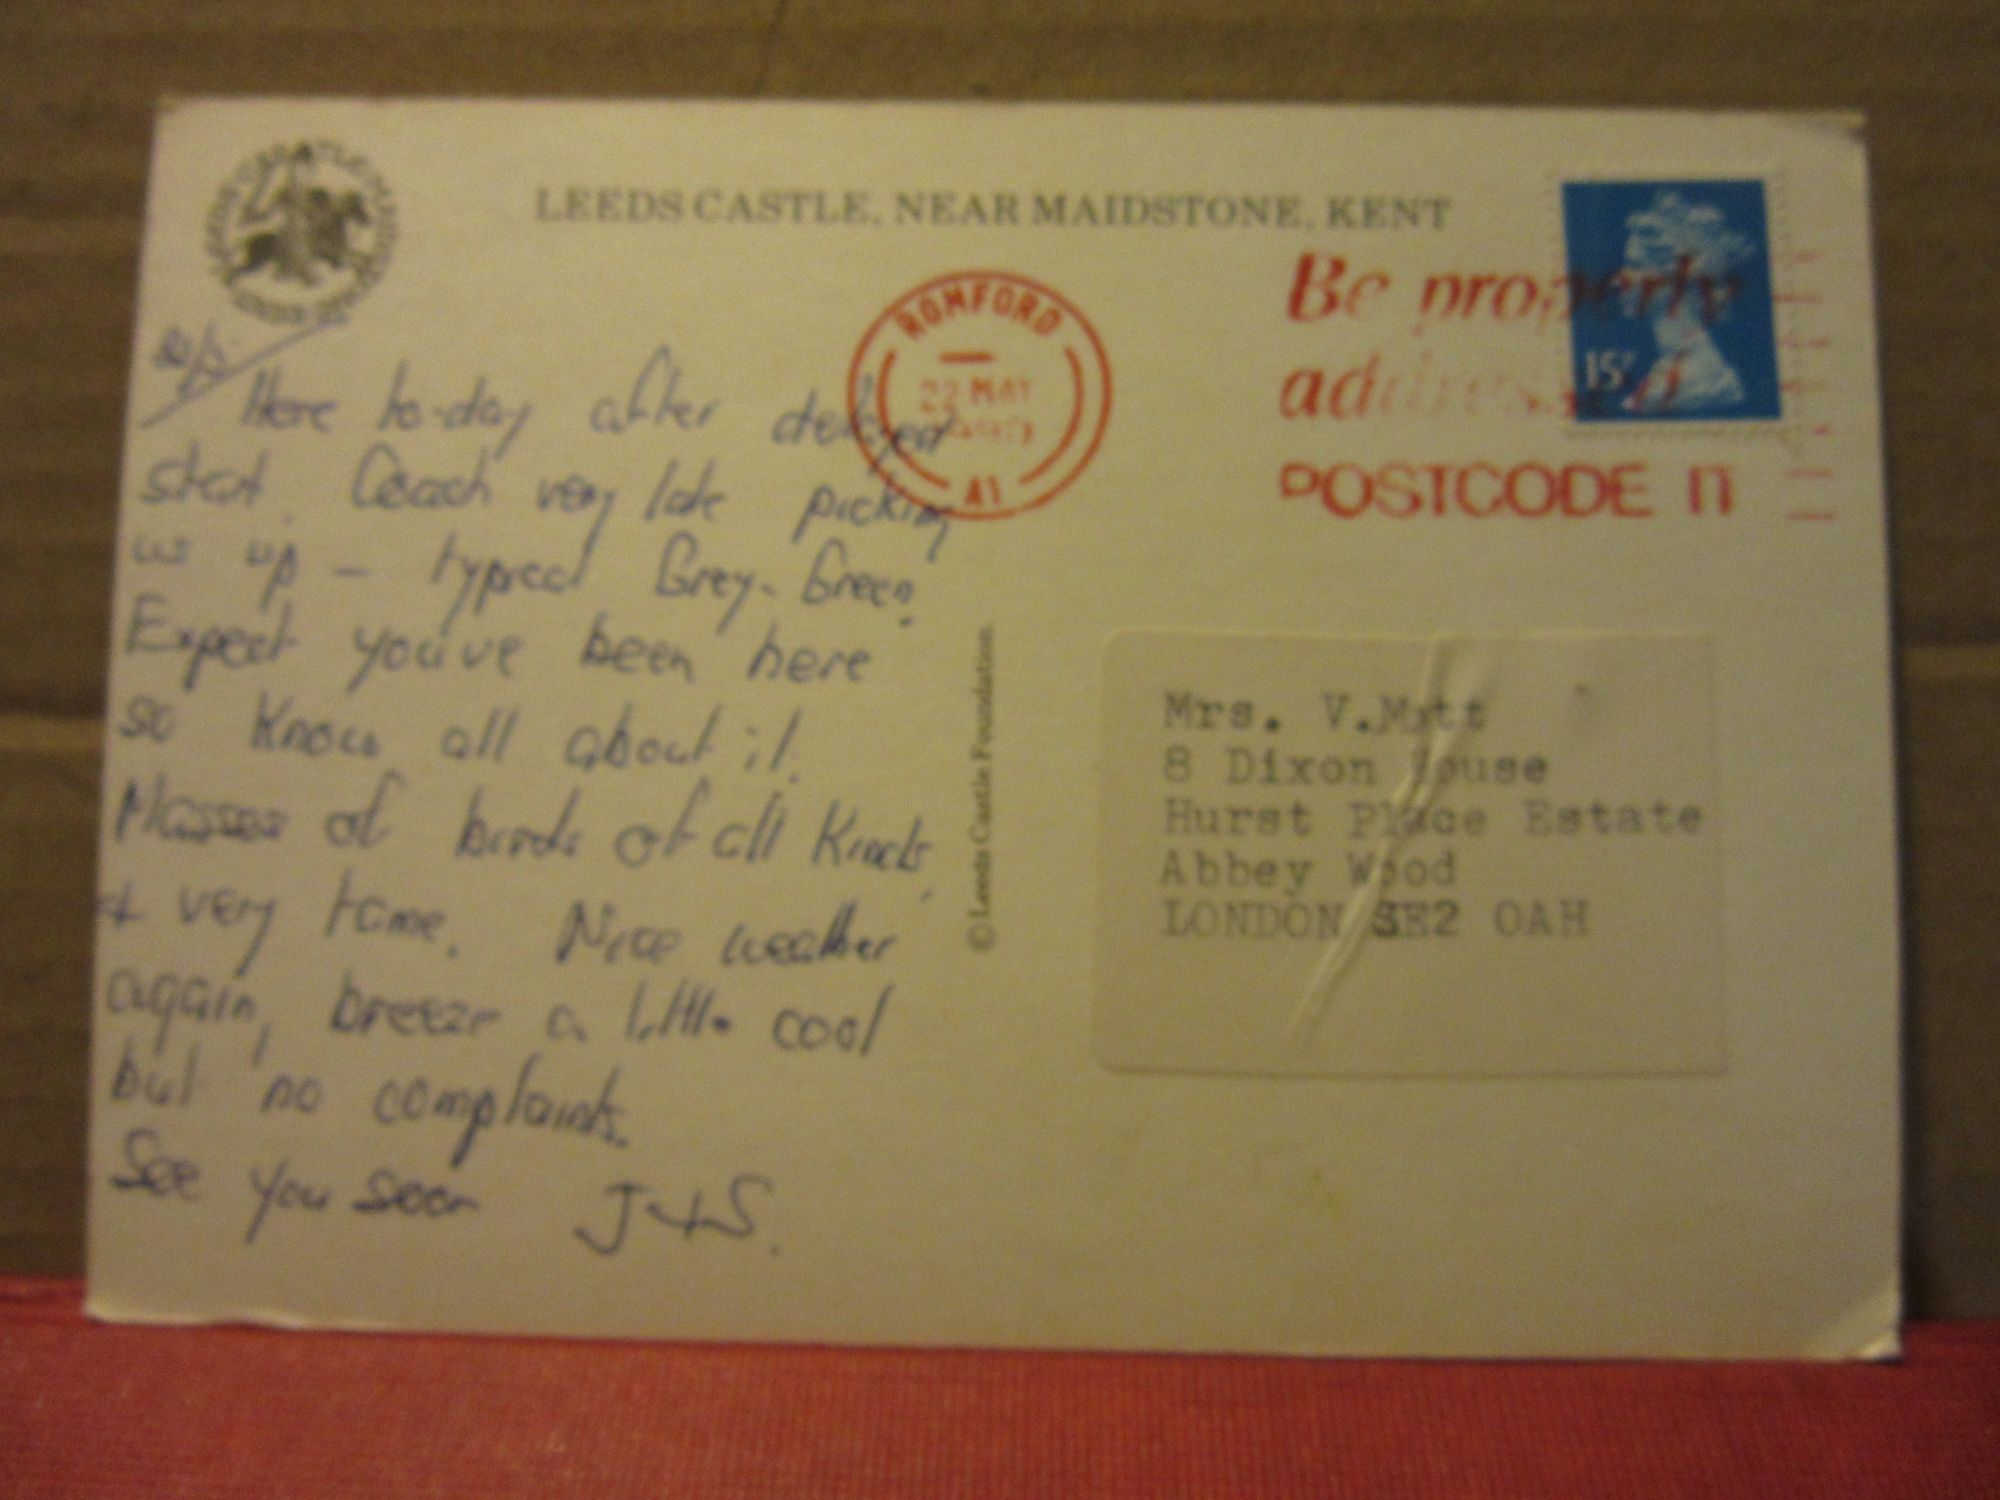 LEEDS CASTLE, NEAR MAIDSTONE, KENT
ROMFORD
22 MAY
A1
Be properly
addressed
POSTCODE IT
15P
Here to-day after delayed
start. Coach very late picking
us up - typical Grey-Green.
Expect you've been here
so know all about it.
Masses of birds of all kinds
& very tame. Nice weather
again, breeze a little cool
but no complaints.
See you soon J & S.
© Leeds Castle Foundation.
Mrs. V.Mott
8 Dixon House
Hurst Place Estate
Abbey Wood
LONDON SE2 0AH